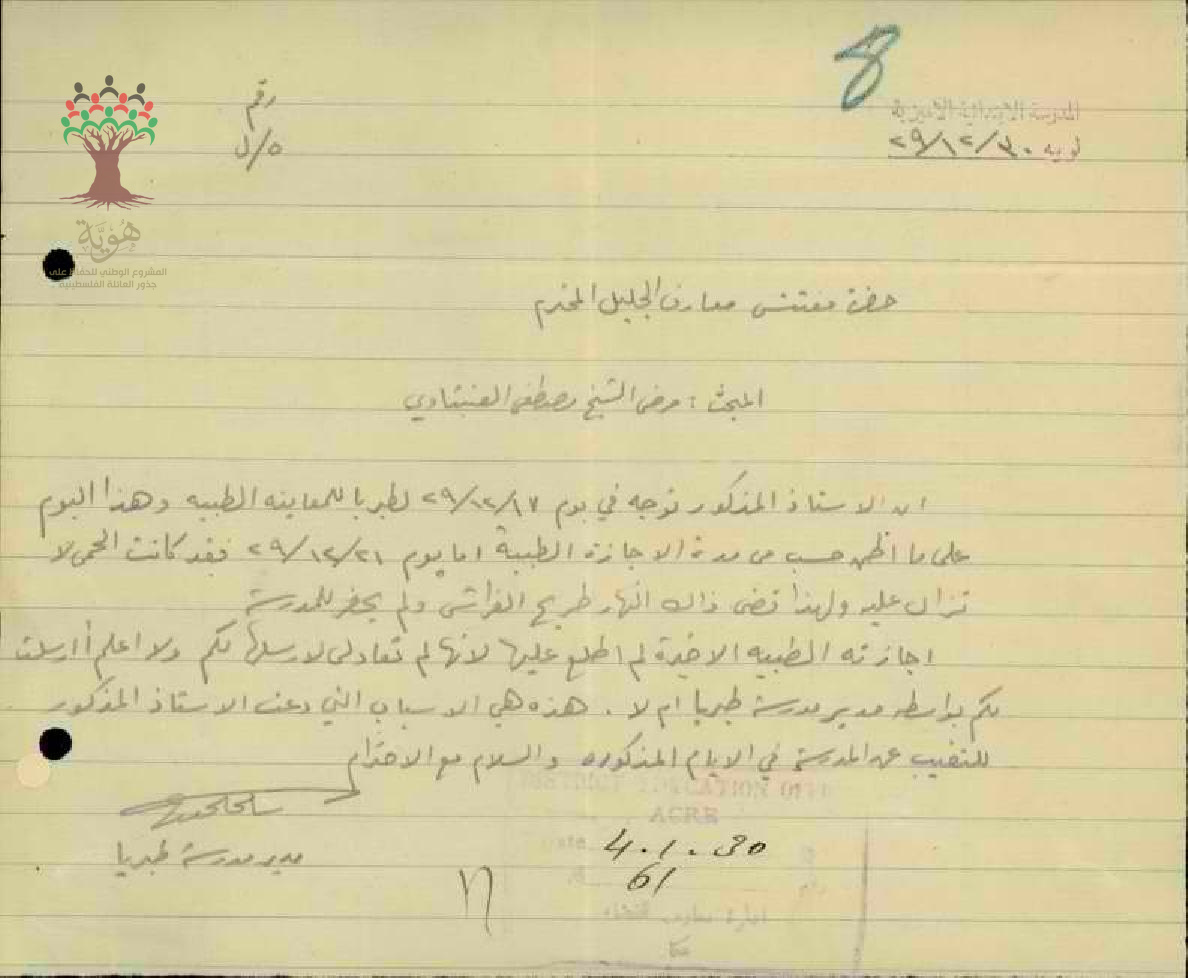 8
المدرسة الابتدائية الاميرية
لوبيه ٢٩/١٢/٣٠
رقم
٥/ل
هُوِيَّة
المشروع الوطني للحفاظ على
جذور العائلة الفلسطينية
حضرة مفتش معارف الجليل المحترم
المبحث : مرض الشيخ مصطفى العنبتاوي
ان الاستاذ المذكور توجه في يوم ٢٩/١٢/١٧ لطبريا للمعاينه الطبيه وهذا اليوم
على ما اظن حسب من مدة الاجازة الطبية اما يوم ٢٩/١٢/٢١ فقد كانت الحمى لا
تزال عليه ولهذا قضى ذاك النهار طريح الفراش ولم يحضر للمدرسة
اجازته الطبيه الاخيرة لم اطلع عليها لانها لم تعاد لي لارسلها لكم ولا اعلم أارسلت
لكم بواسطه مدير مدرسة طبريا ام لا . هذه هي الاسباب التي دعت الاستاذ المذكور
للتغيب عن المدرسة في الايام المذكوره والسلام مع الاحترام
مدير مدرسة طبريا
DISTRICT EDUCATION OFFI
ACRE
Date 4.1.30
61
رقم
ادارة معارف
عكا